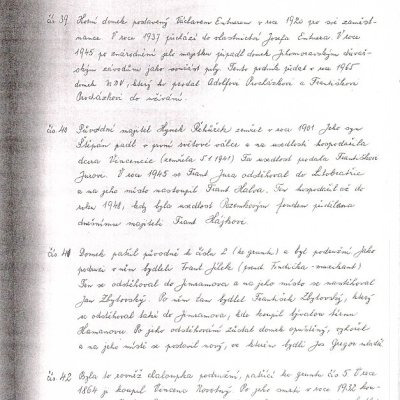 čís 39. Horní domek postavený Václavem Entnerem v roce 1920 po své zaměst-
nance V roce 1937 přechází do vlastnictví Josefa Entnera V roce
1945 po znárodnění jeho majetku připadl domek Jihomoravským dřevař-
ským závodům jako součást pily. Tento podnik předal v roce 1965
domek MNV, který ho prodal Adolfovi Procházkovi a Františkovi
Procházkovi do užívání.
čís 40 Původní majitel Hynek Řeháček zemřel v roce 1901 Jeho syn
Štěpán padl v první světové válce a na usedlosti hospodařila
dcera Vincencie (zemřela 5.1 1941) Tu usedlost prodala Františkovi
Jurovi. V roce 1945 se Frant Jura odstěhoval do Litobratřic
a na jeho místo nastoupil Frant Halva. Ten hospodařil až do
roku 1948, kdy byla usedlost Pozemkovým fondem přidělena
dnešnímu majiteli Frant Hájkovi
čís 41 Domek patřil původně k číslu 2 (ke gruntu) a byl podružní Jako
podruzi v něm bydleli Frant Jílek (přezd muzikant)
Ten se odstěhoval do Jimramova a na jeho místo se nastěhoval
Jan Zbytovský Po něm tam bydlel František Zbytovský, který
se odstěhoval také do Jimramova, kde koupil bývalou
Hamanovu Po jeho odstěhování zůstal domek opuštěný, vyhořel
a na jeho místě se postavil nový, ve kterém bydlí Jos Gregor mladší
čís 42 Byla to rovněž chaloupka podružní, patřící ke gruntu čís 5 V roce
1864 ji koupil Vincenc Novotný Po jeho smrti v roce 1932 kou-